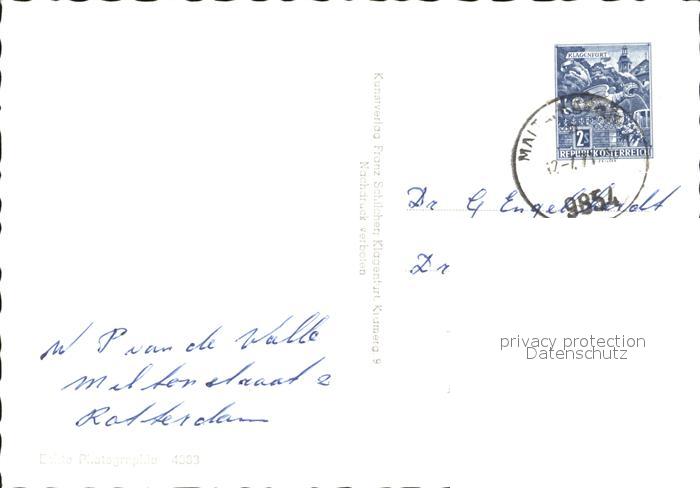 KLAGENFURT
2S
REPUBLIK ÖSTERREICH
9854
Kunstverlag Franz Schilcher, Klagenfurt, Kumpfg 9
Nachdruck verboten
Dr G Engelhardt
Dr
privacy protection
Datenschutz
W P van de Valle
Miltonstraat 2
Rotterdam
Echte Photographie 4383